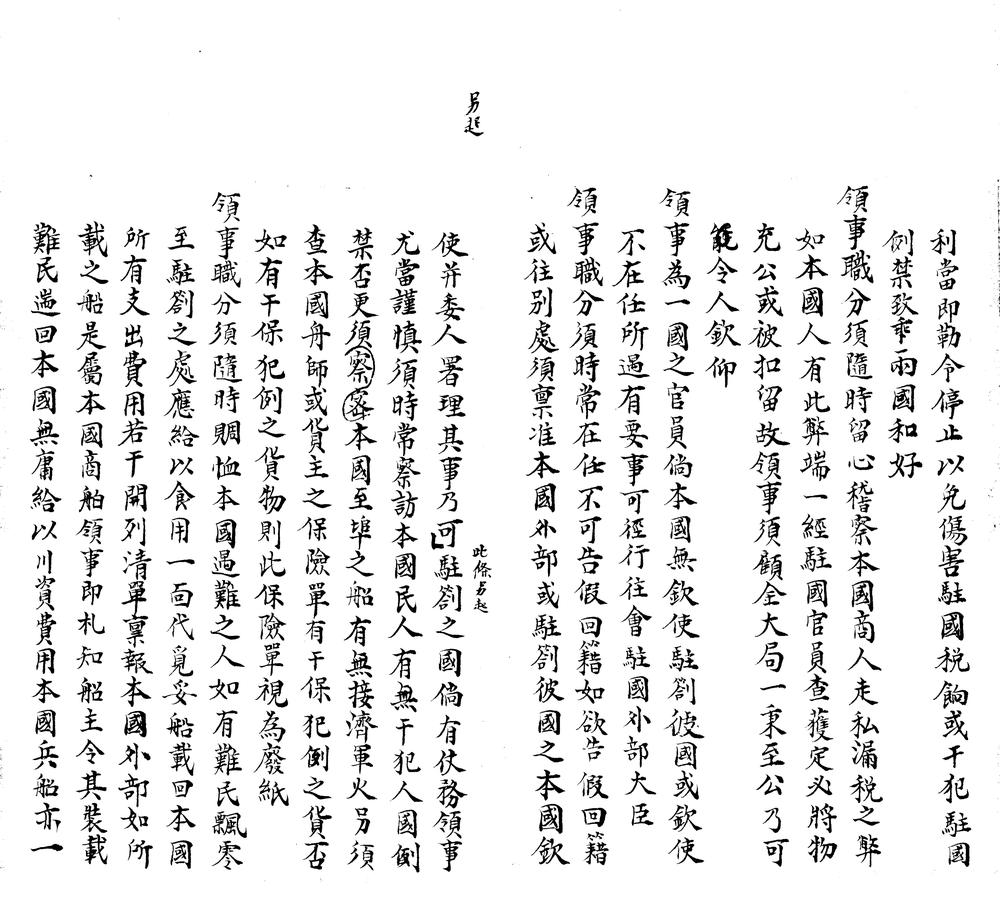 利當即勒令停止以免傷害駐國税餉或干犯駐國
例禁致乖兩國和好
領事職分須隨時留心稽察本國商人走私漏税之弊
如本國人有此弊端一經駐國官員查獲定必將物
充公或被扣留故領事須顧全大局一秉至公乃可
令人欽仰
領事為一國之官員倘本國無欽使駐劄彼國或欽使
不在任所過有要事可徑行往會駐國外部大臣
領事職分須時常在任不可告假回籍如欲告假回籍
或往别處須禀准本國外部或駐劄彼國之本國欽
另起
使并委人署理其事乃可駐劄之國倘有仗務領事
此條另起
尤當謹慎須時常察訪本國民人有無干犯人國例
禁否更須察察本國至埠之船有無接濟軍火另須
查本國舟師或貨主之保險單有干保犯例之貨否
如有干保犯例之貨物則此保險單視為廢紙
領事職分須隨時賙恤本國遇難之人如有難民飄零
至駐劄之處應給以食用一面代覓妥船載回本國
所有支出費用若干開列清單禀報本國外部如所
載之船是屬本國商舶領事即札知船主令其裝載
難民遄回本國無庸給以川資費用本國兵船亦一